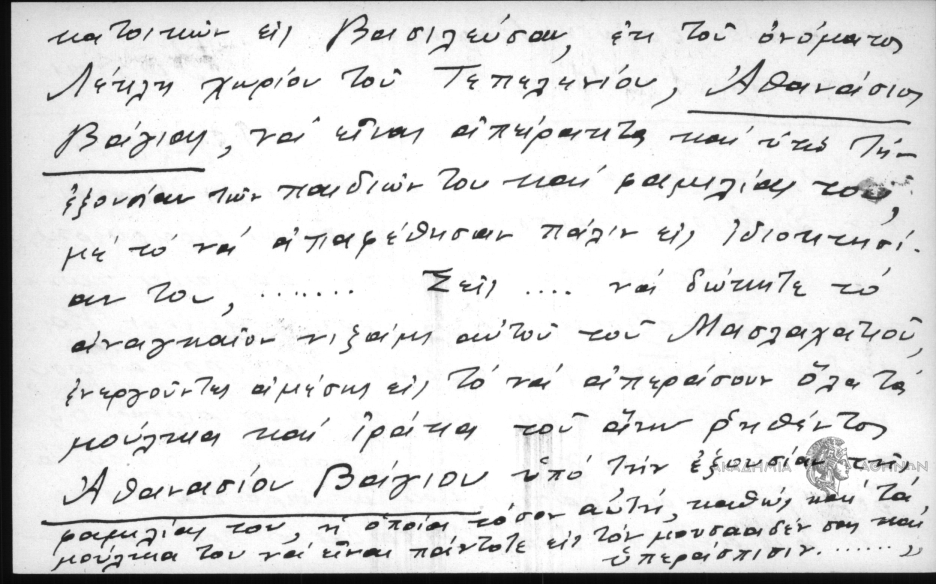 κατοικῶν εἰς Βασιλεύσαν, ἐκ τοῦ ὀνόματος
Λέκλη χωρίου τοῦ Τεπελενίου, Ἀθανάσιος
Βάγιας, νά εἶναι ἀπείρακτα καί ὑπό τήν
ἐξουσίαν τῶν παιδιῶν του καί φαμιλίας του,
μέ τό νά ἀπαρέθησαν πάλιν εἰς ἰδιοκτησί-
αν του, ....... Σεῖς .... νά δώκητε τό
ἀναγκαῖον νιζάμι αὐτοῦ τοῦ Μασλαχατιοῦ,
ἐνεργοῦντες ἀμέσως εἰς τό νά ἀπεράσουν ὅλα τά
μούλκια καί ἰράτια τοῦ ἄνω ρηθέντος
Ἀθανασίου Βάγιου ὑπό τήν ἐξουσίαν τῆς
φαμιλίας του, ἡ ὁποία τόσον αὐτή, καθώς καί τά
μούλκια του νά εἶναι πάντοτε εἰς τόν μουσααδέν σας καί
ὑπεράσπισιν. ...... »
ΑΚΑΔΗΜΙΑ ΑΘΗΝΩΝ